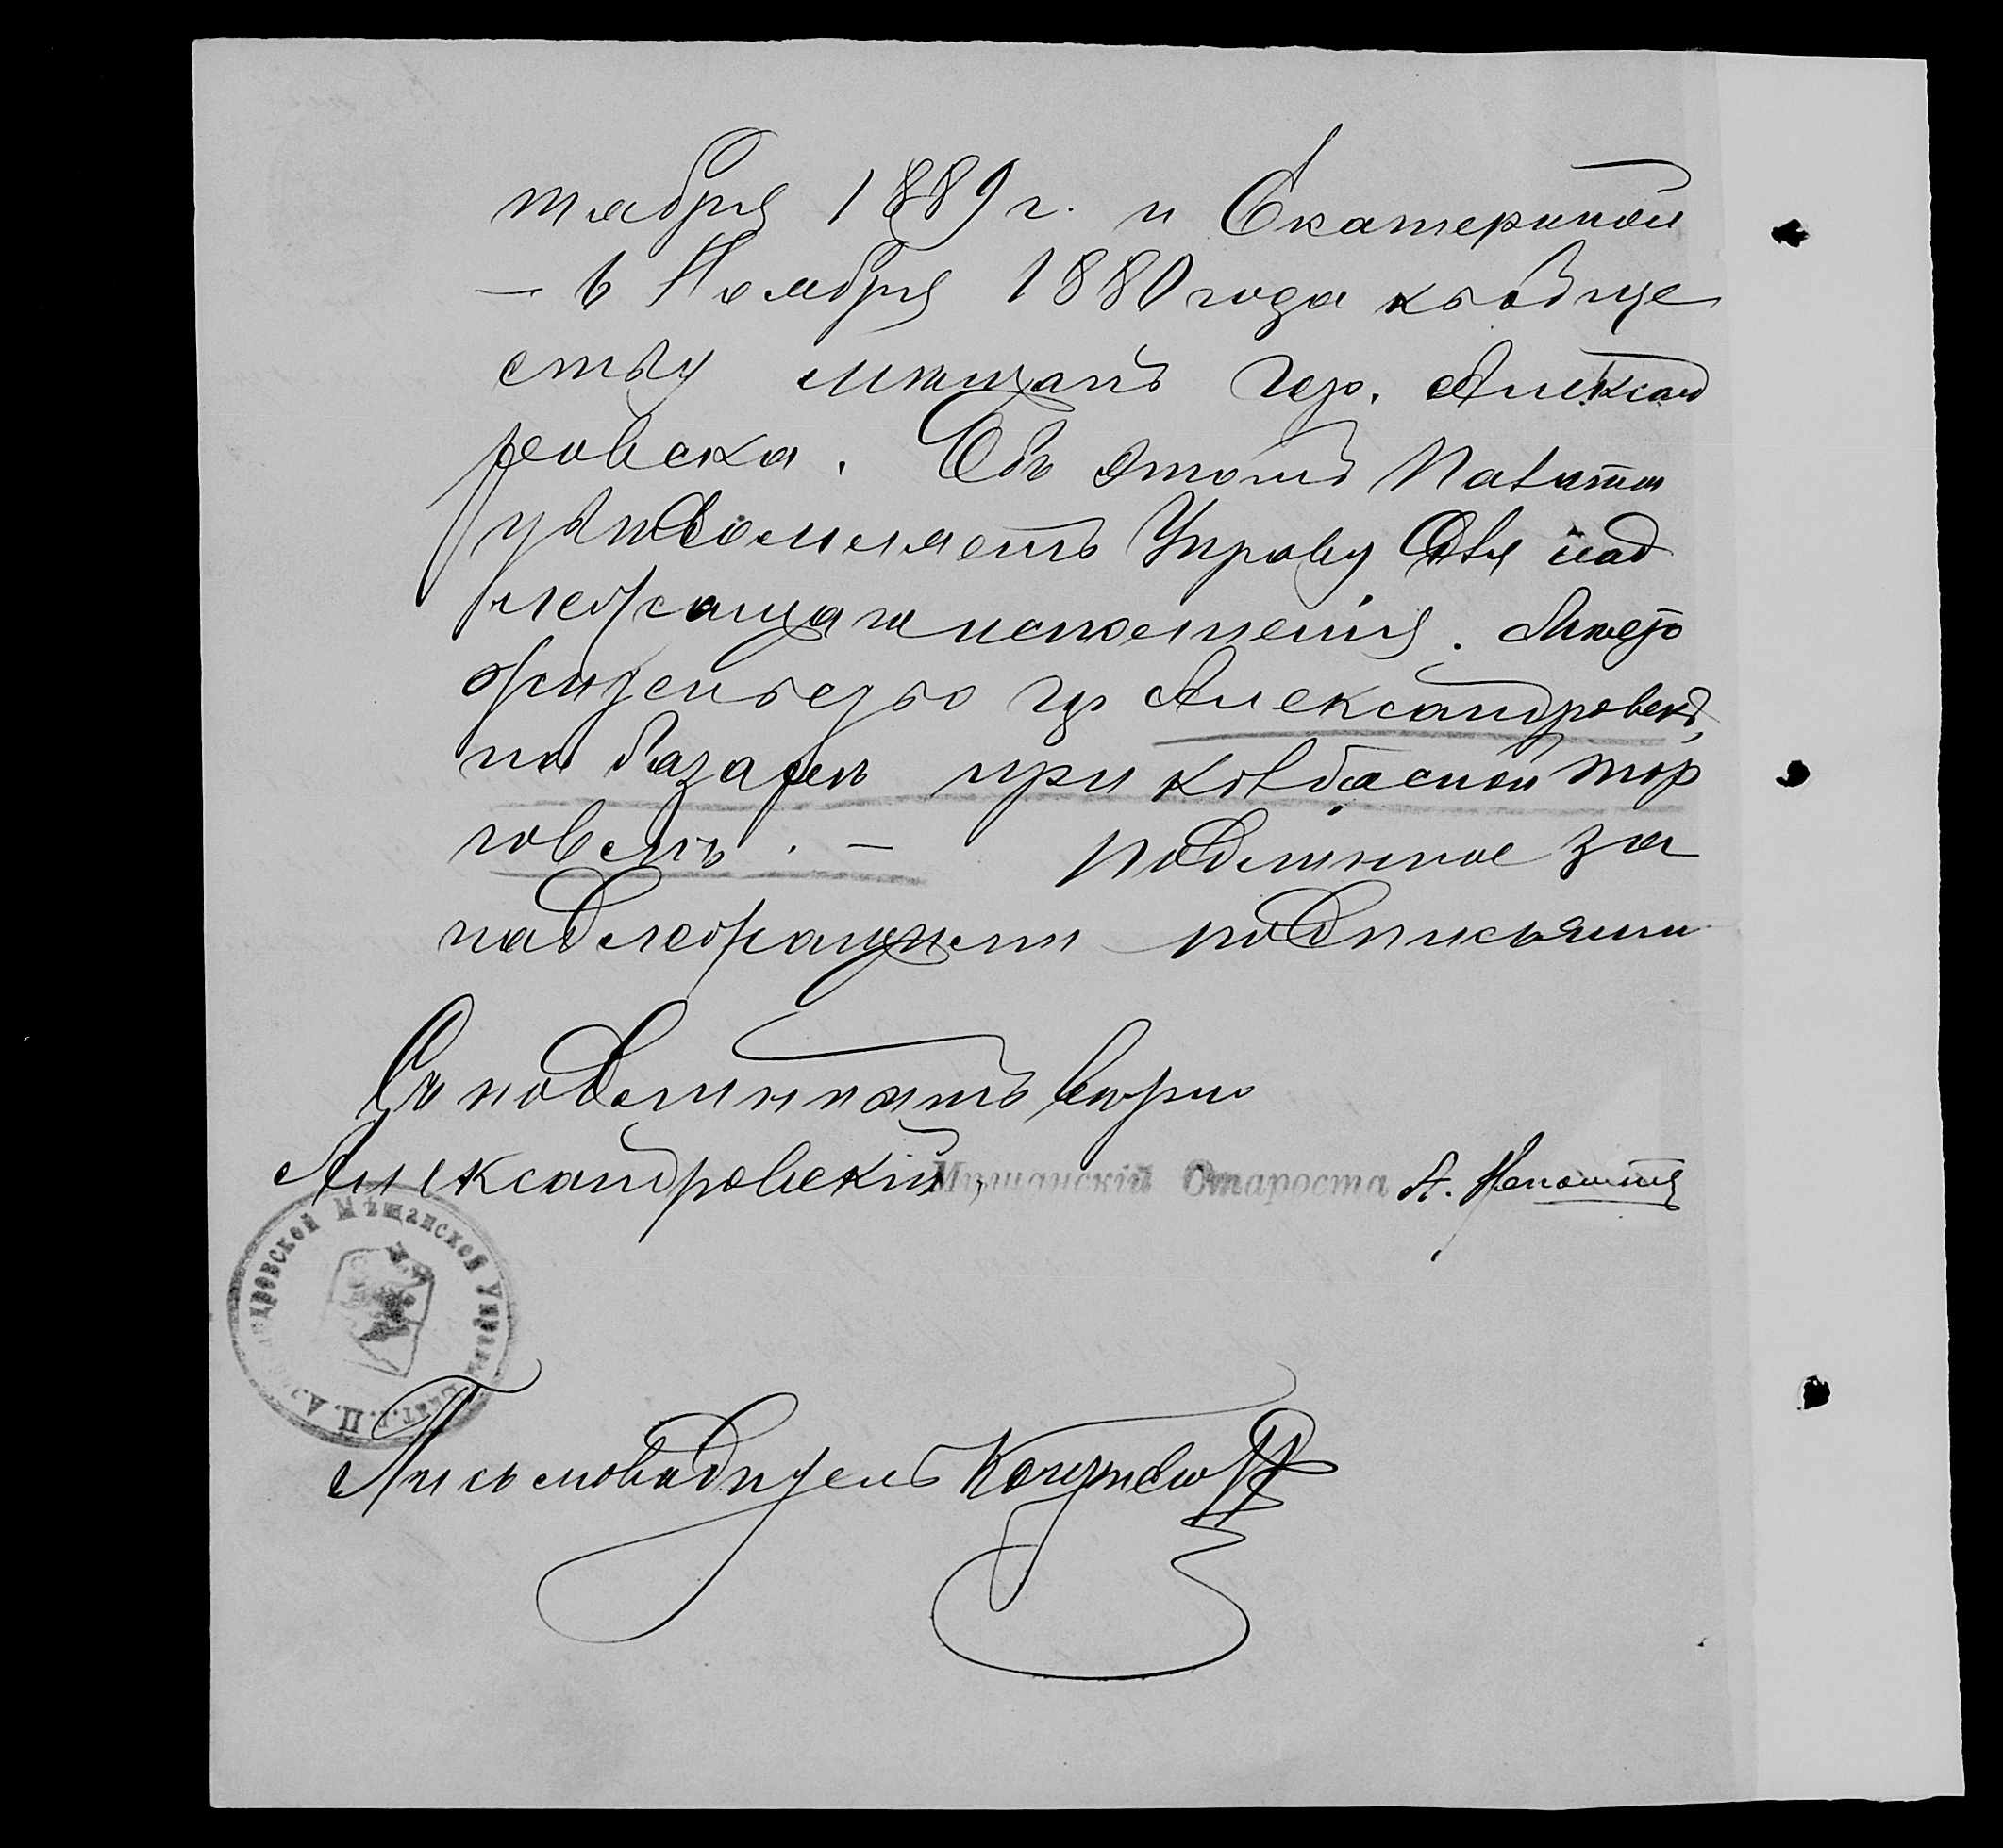 тября 1889 г. и Екатериной
— 6 Ноября 1880 года къ обще
ству мѣщанъ гор. Александ
ровска. Объ этомъ Палата
увѣдомляетъ Управу для над
лежащаго исполненія.
жительство гр Александровскѣ,
на базарѣ при колбасной тор
говлѣ. — Подлинное за
надлежащими подписями
Съ подлиннымъ вѣрно
Александровскій Мѣщанскій Староста А.
Александровской Мѣщанской Управы Екат. г. П. А.
Письмоводитель